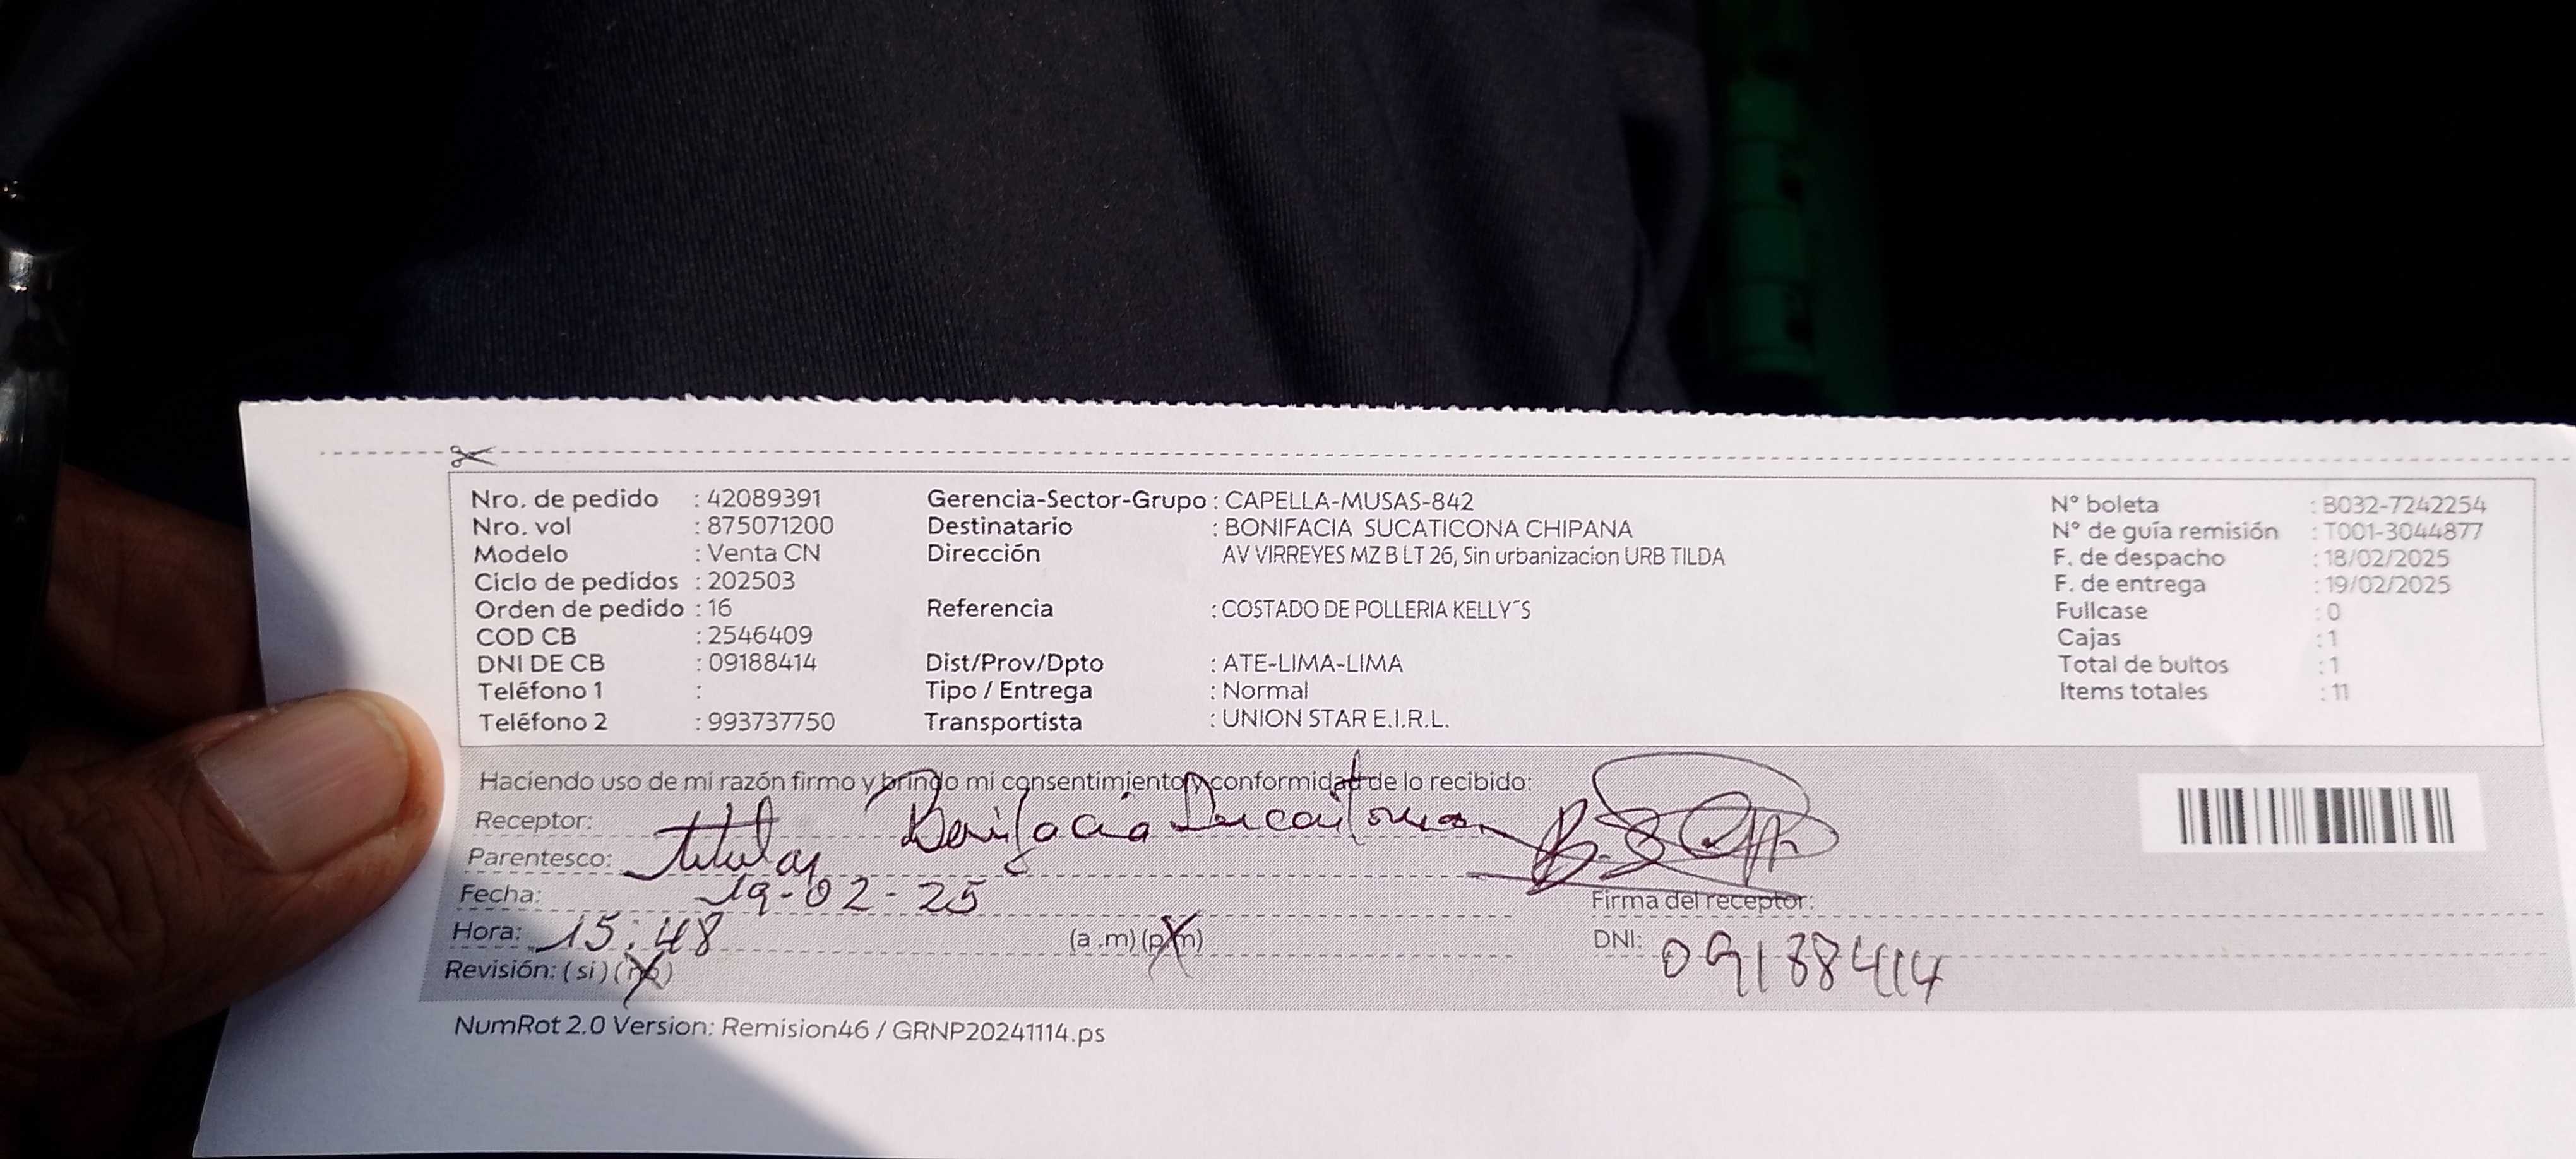 Nro. de pedido : 42089391 Gerencia-Sector-Grupo : CAPELLA-MUSAS-842 N° boleta : B032-7242254
Nro. vol : 875071200 Destinatario : BONIFACIA SUCATICONA CHIPANA N° de guía remisión : T001-3044877
Modelo : Venta CN Dirección AV VIRREYES MZ B LT 26, Sin urbanizacion URB TILDA F. de despacho : 18/02/2025
Ciclo de pedidos : 202503 F. de entrega : 19/02/2025
Orden de pedido : 16 Referencia : COSTADO DE POLLERIA KELLY´S Fullcase : 0
COD CB : 2546409 Cajas : 1
DNI DE CB : 09188414 Dist/Prov/Dpto : ATE-LIMA-LIMA Total de bultos : 1
Teléfono 1 : Tipo / Entrega : Normal Items totales : 11
Teléfono 2 : 993737750 Transportista : UNION STAR E.I.R.L.
Haciendo uso de mi razón firmo y brindo mi consentimiento y conformidad de lo recibido:
Receptor: Bonifacia Sucaticona
Parentesco: titular
Fecha: 19-02-25 Firma del receptor:
Hora: 15:48 (a .m) (p.m) DNI: 09188414
Revisión: (si) (no)
NumRot 2.0 Version: Remision46 / GRNP20241114.ps